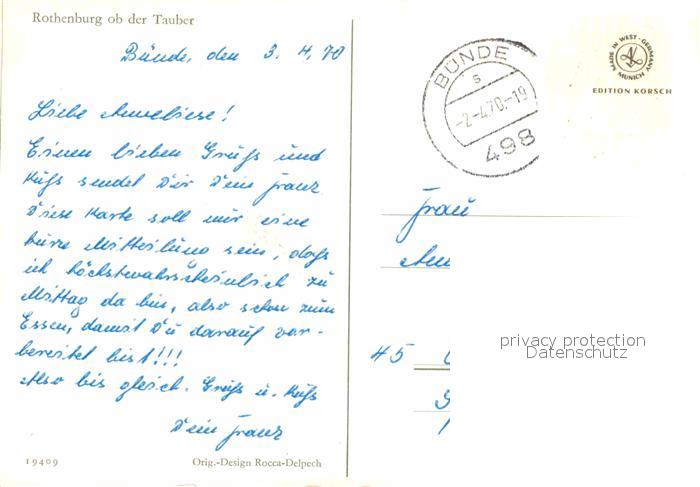 Rothenburg ob der Tauber
Bünde, den 3. 4. 70
Liebe Anneliese!
Einen lieben Gruß und
Kuß sendet Dir Dein Franz
Diese Karte soll nur eine
kurze Mitteilung sein, daß
ich höchstwahrscheinlich zu
Mittag da bin, also schon zum
Essen, damit Du darauf vor-
bereitet bist!!!
Also bis gleich. Gruß u. Kuß
Dein Franz
19409
Orig.-Design Rocca-Delpech
BÜNDE
s
-2-4.70.-19
498
MADE IN WEST-GERMANY
MUNICH
EDITION KORSCH
Frau
Ann
45
privacy protection
Datenschutz